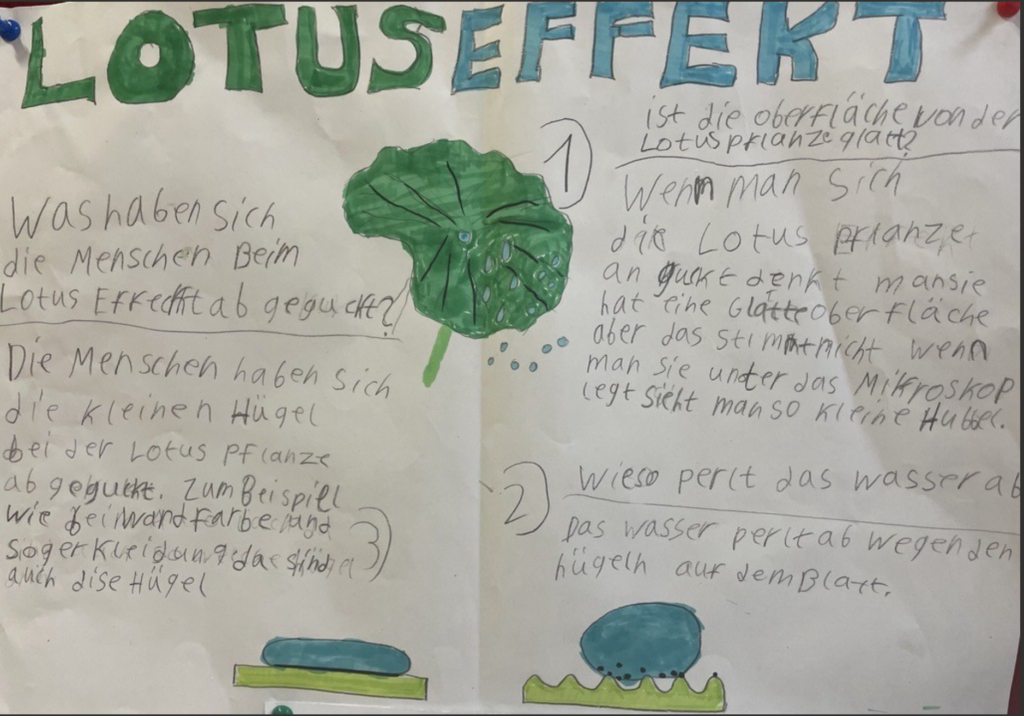 LOTUSEFFEKT
1
ist die oberfläche von der
Lotuspflanze glatt?
Wenn man sich
die Lotus pflanze
an guckt denkt man sie
hat eine Glatte oberfläche
aber das stimmt nicht wenn
man sie unter das Mikroskop
legt sieht man so kleine Hubbel.
2
Wieso perlt das wasser ab
Das wasser perlt ab wegen den
hügeln auf dem Blatt.
3
Was haben sich
die Menschen Beim
Lotus Effecktt ab geguckt?
Die Menschen haben sich
die kleinen Hügel
bei der Lotus pflanze
ab geguckt. Zum Beispiel
wie bei wandfarbe und
soger Kleidung da sind
auch dise Hügel